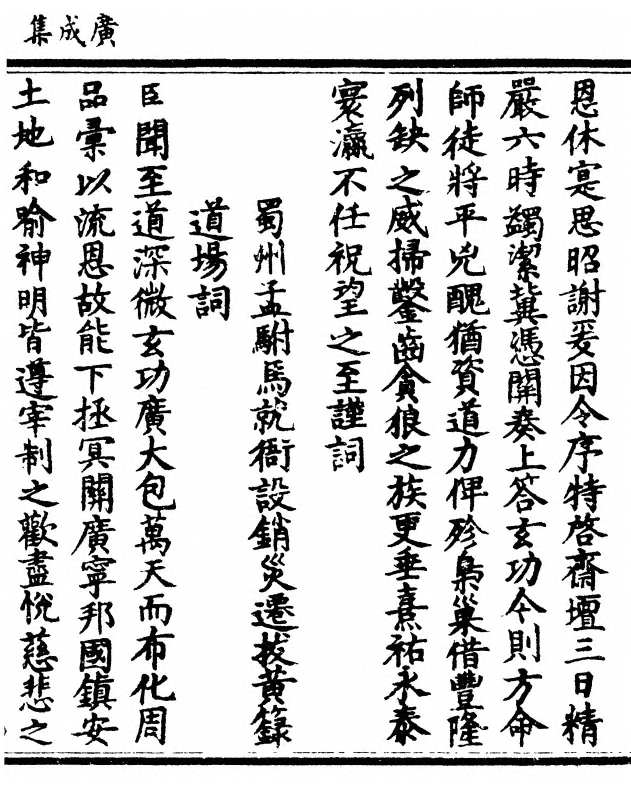 廣成集
恩休寔思昭謝爰因令序特啓齋壇三日精
嚴六時蠲潔冀憑關奏上答玄功今則方命
師徒將平兇醜猶資道力俾殄梟巢借豐隆
列缺之威掃鑿齒貪狼之族更垂熹祐永泰
寰瀛不任祝望之至謹詞
蜀州孟駙馬就衙設銷災遷拔黃籙
道場詞
臣聞至道深微玄功廣大包萬天而布化周
品彙以流恩故能下拯冥關廣寧邦國鎮安
土地和喻神明皆遵宰制之歡盡悅慈悲之